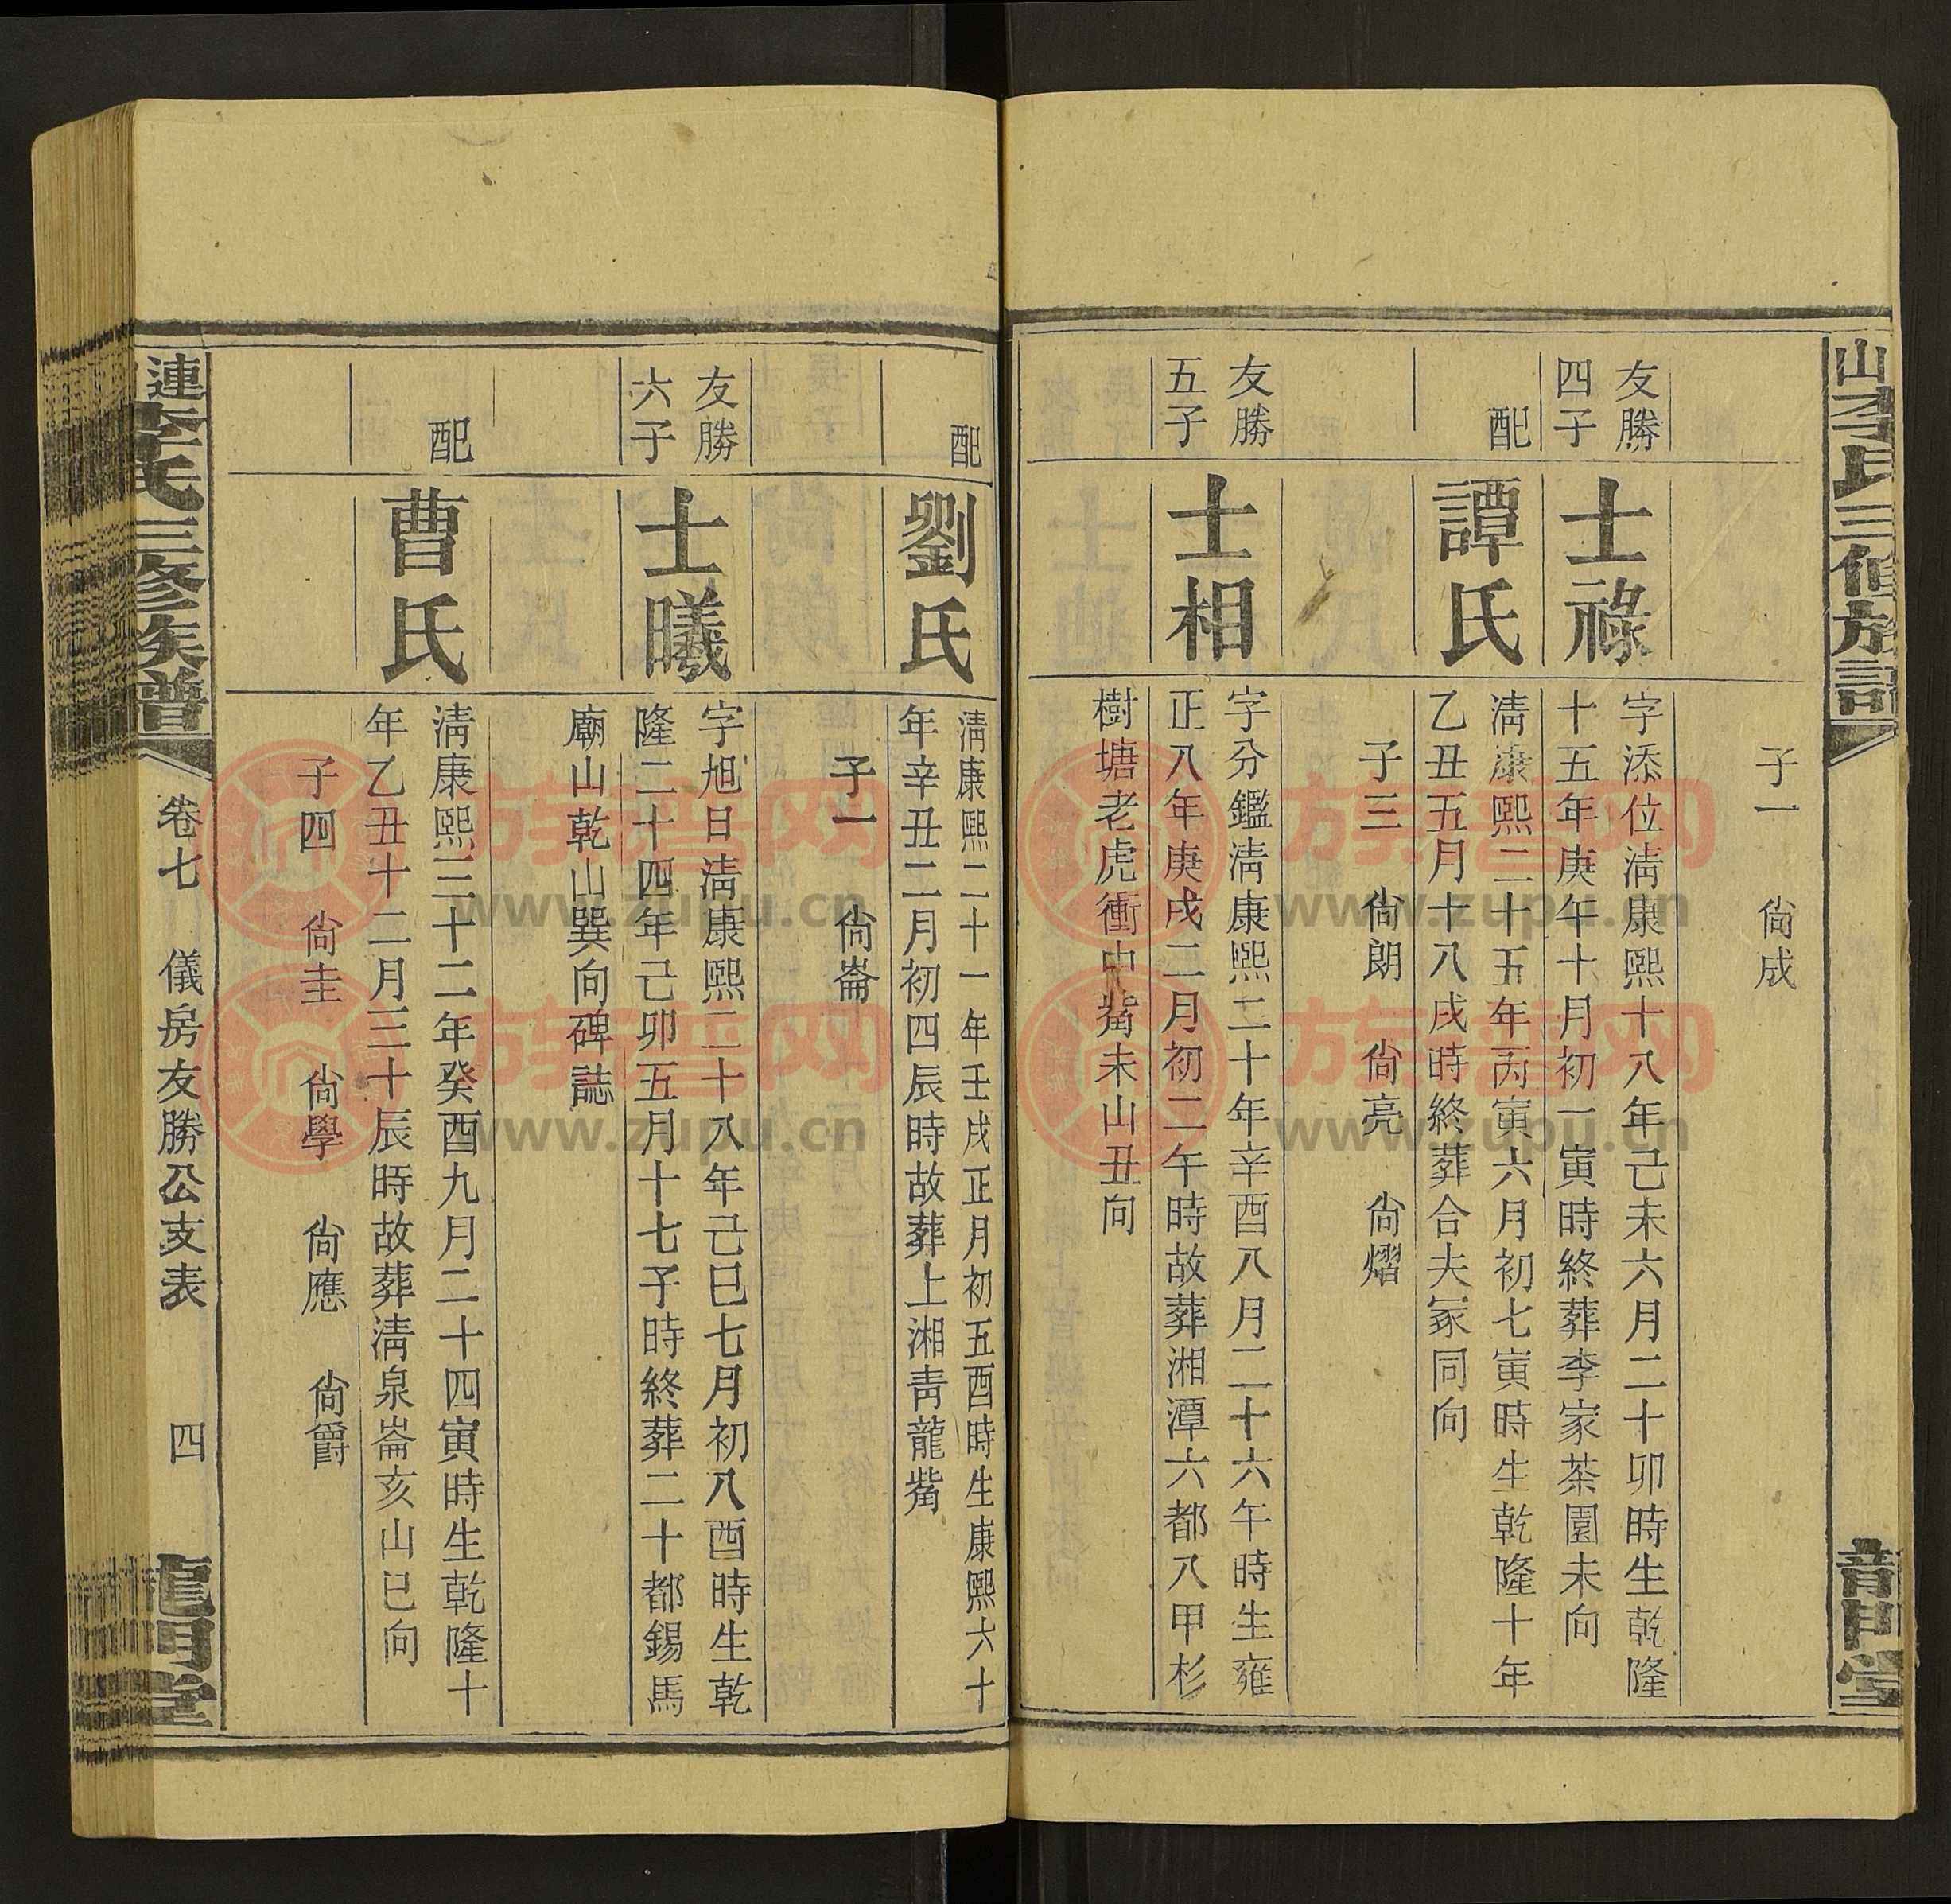 山李氏三修族譜
龍門堂
子一 尙成
友勝
四子
士祿
字添位淸康熙十八年己未六月二十卯時生乾隆
十五年庚午十月初一寅時終葬李家茶園未向
配
譚氏
淸康熙二十五年丙寅六月初七寅時生乾隆十年
乙丑五月十八戌時終葬合夫冢同向
子三 尙朗 尙亮 尙熠
友勝
五子
士相
字分鑑淸康熙二十年辛酉八月二十六午時生雍
正八年庚戌二月初二午時故葬湘潭六都八甲杉
樹塘老虎衝中嘴未山丑向
配
劉氏
淸康熙二十一年壬戌正月初五酉時生康熙六十
年辛丑二月初四辰時故葬上湘靑龍嘴
子一 尙崙
友勝
六子
士曦
字旭日淸康熙二十八年己巳七月初八酉時生乾
隆二十四年己卯五月十七子時終葬二十都錫馬
廟山乾山巽向碑誌
配
曹氏
淸康熙三十二年癸酉九月二十四寅時生乾隆十
年乙丑十二月三十辰時故葬淸泉崙亥山巳向
子四 尙圭 尙學 尙應 尙爵
連
李氏三修族譜
卷七 儀房友勝公支表 四
龍門堂
族譜网
www.zupu.cn
族譜网
www.zupu.cn
族譜网
www.zupu.cn
族譜网
www.zupu.cn